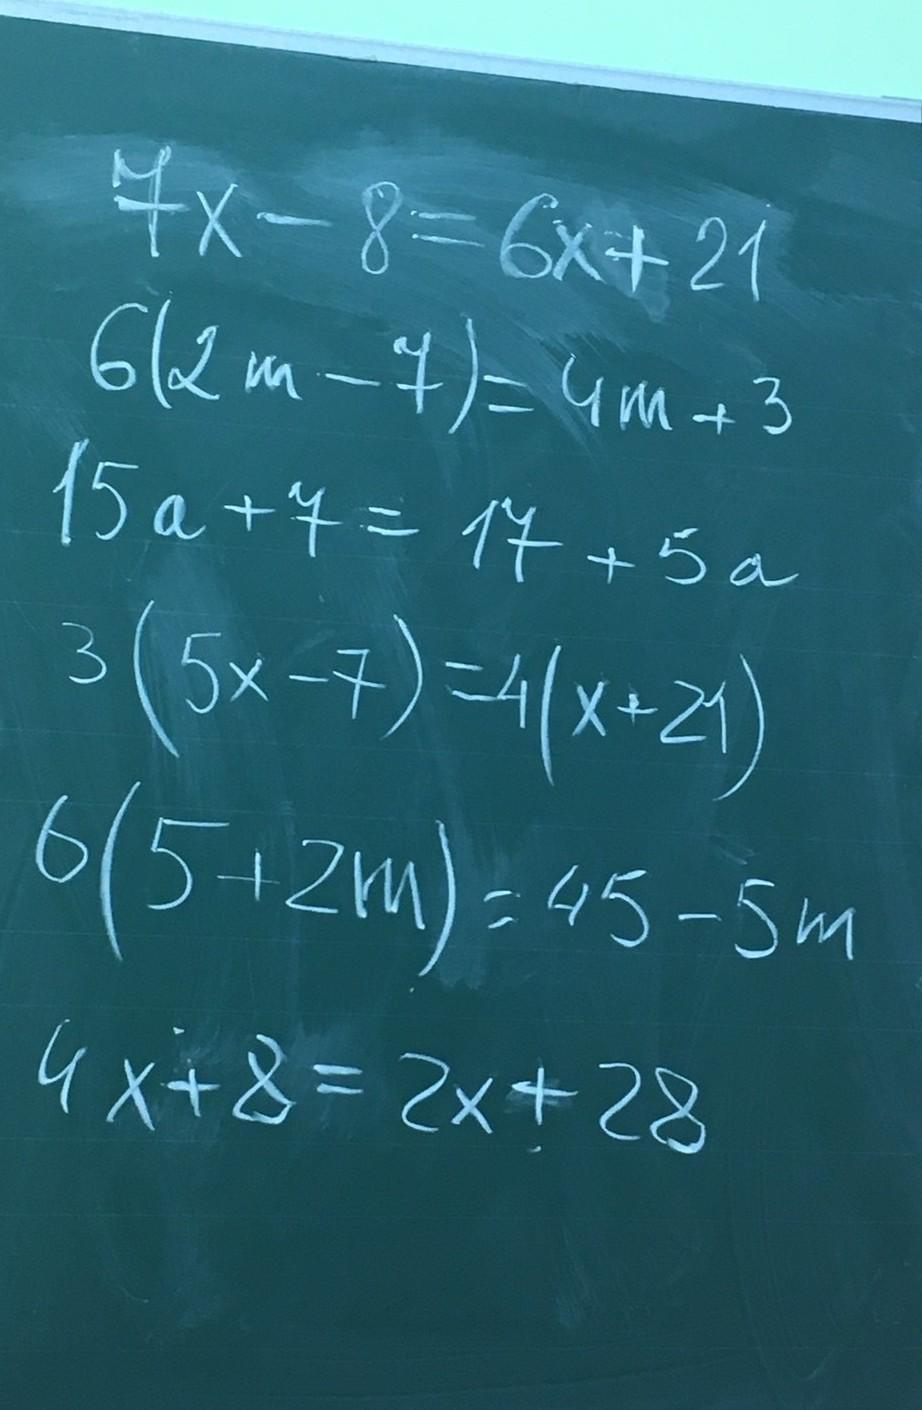 7x - 8 = 6x + 21
6(2m - 7) = 4m + 3
15a + 7 = 17 + 5a
3(5x - 7) = 4(x + 21)
6(5 + 2m) = 45 - 5m
4x + 8 = 2x + 28